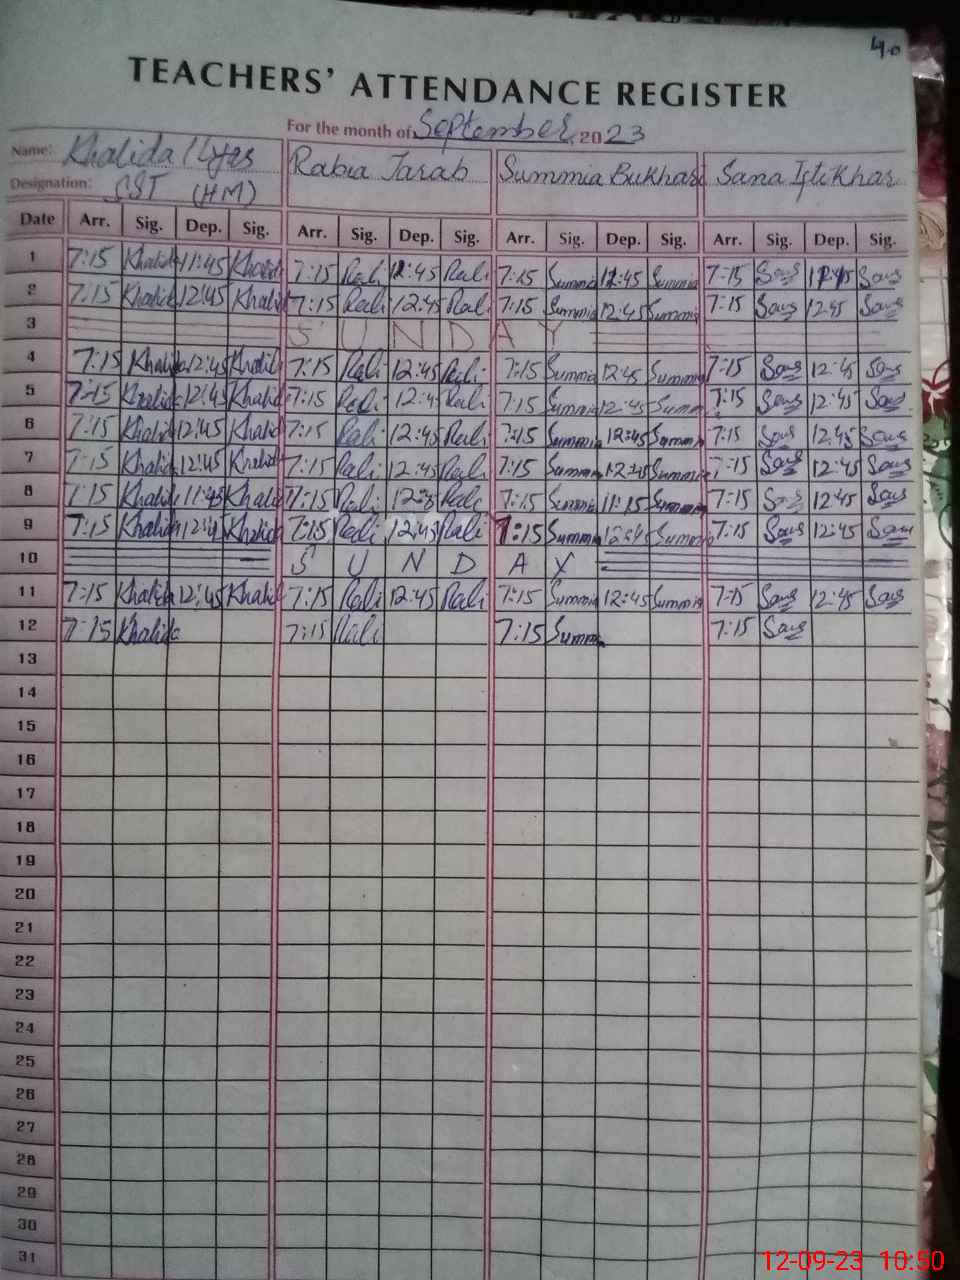 40
TEACHERS' ATTENDANCE REGISTER
For the month of September 2023
Name: Khalida Ilyas Rabia Tarab Summia Bukhari Sana Iftikhar
Designation: SST (HM)
Date Arr. Sig. Dep. Sig. Arr. Sig. Dep. Sig. Arr. Sig. Dep. Sig. Arr. Sig. Dep. Sig.
1 7:15 Khalida 11:45 Khalida 7:15 :45 7:15 Summia :45 Summia 7:15
2 7:15 Khalida 12:45 Khalida 7:15 12:45 7:15 Summia 12:45 Summia 7:15 12:45
3 SUNDAY
4 7:15 Khalida 12:45 Khalida 7:15 12:45 7:15 Summia 12:45 Summia 7:15 12:45
5 7:15 Khalida 12:45 Khalida 7:15 12:45 7:15 Summia 12:45 Summ 7:15 12:45
6 7:15 Khalida 12:45 Khalida 7:15 12:45 7:15 Summia 12:45 Summia 7:15 12:45
7 7:15 Khalida 12:45 Khalida 7:15 12:45 7:15 Summia 12:45 Summia 7:15 12:45
8 7:15 Khalida 11:45 Khalida 7:15 7:15 Summia 11:15 Summia 7:15 12:45
9 7:15 Khalida 12:45 Khalida 7:15 12:45 7:15 Summia 12:45 Summia 7:15 12:45
10 SUNDAY
11 7:15 Khalida 12:45 Khalida 7:15 12:45 7:15 Summia 12:45 Summia 7:15 12:45
12 7:15 Khalida 7:15 7:15 Summ 7:15
13
14
15
16
17
18
19
20
21
22
23
24
25
26
27
28
29
30
31
12-09-23 10:50